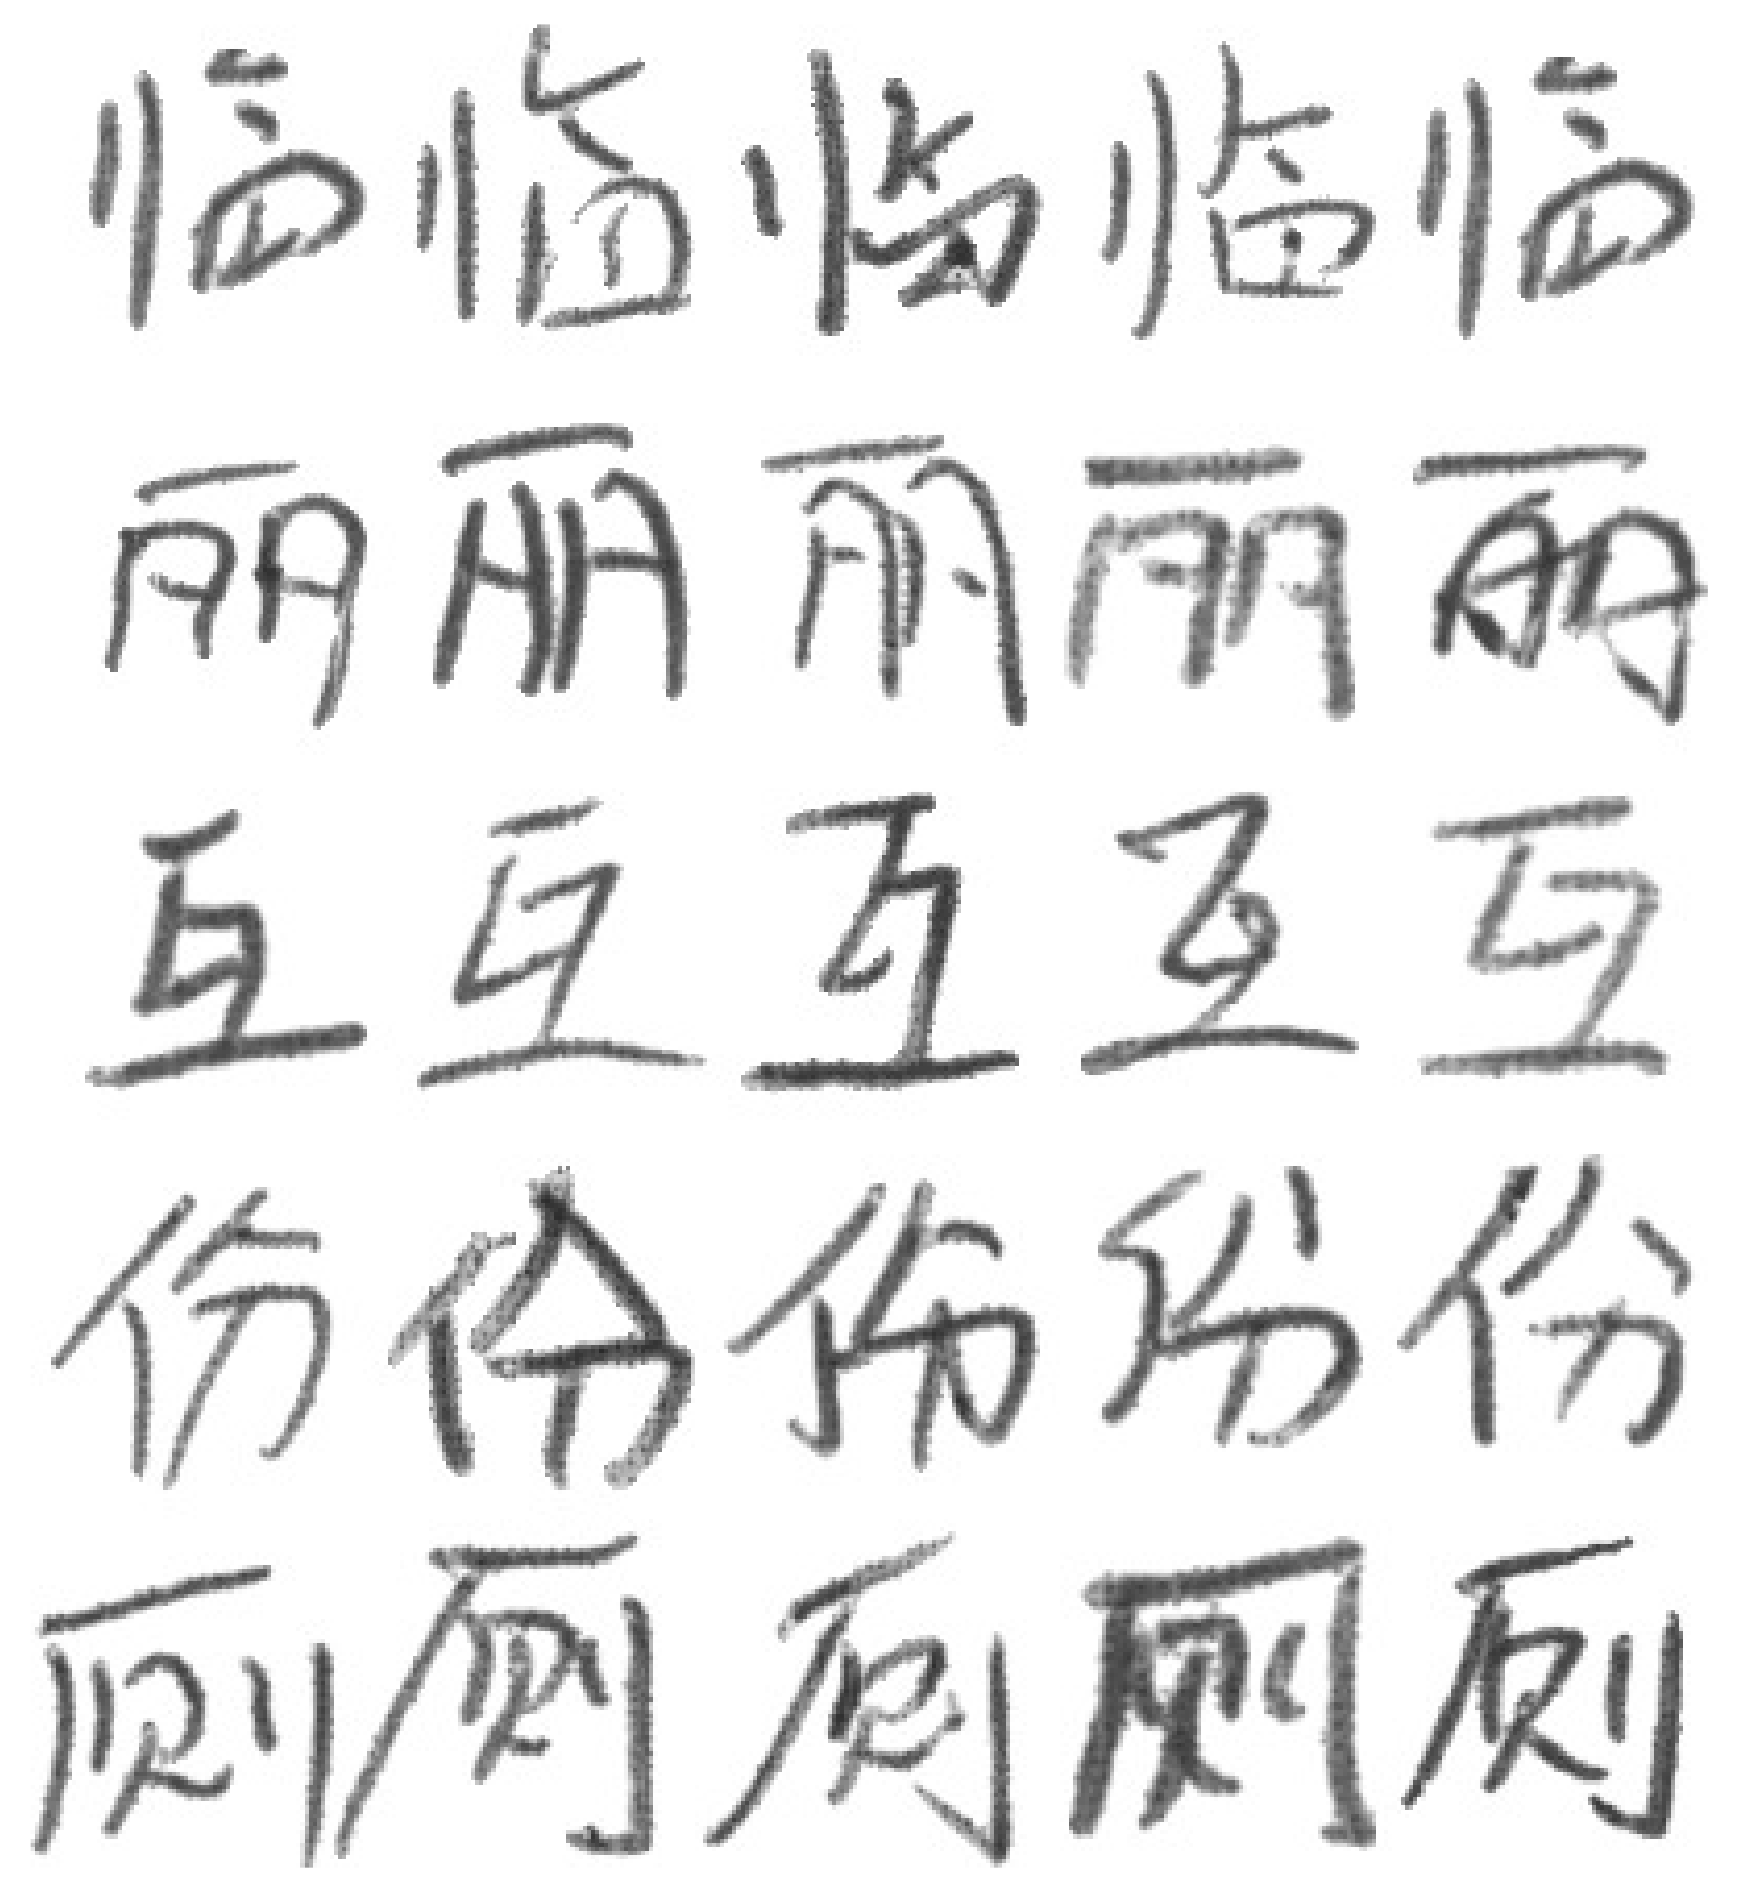 临临临临临
丽丽丽丽丽
互互互互互
份份份份份
厕厕厕厕厕